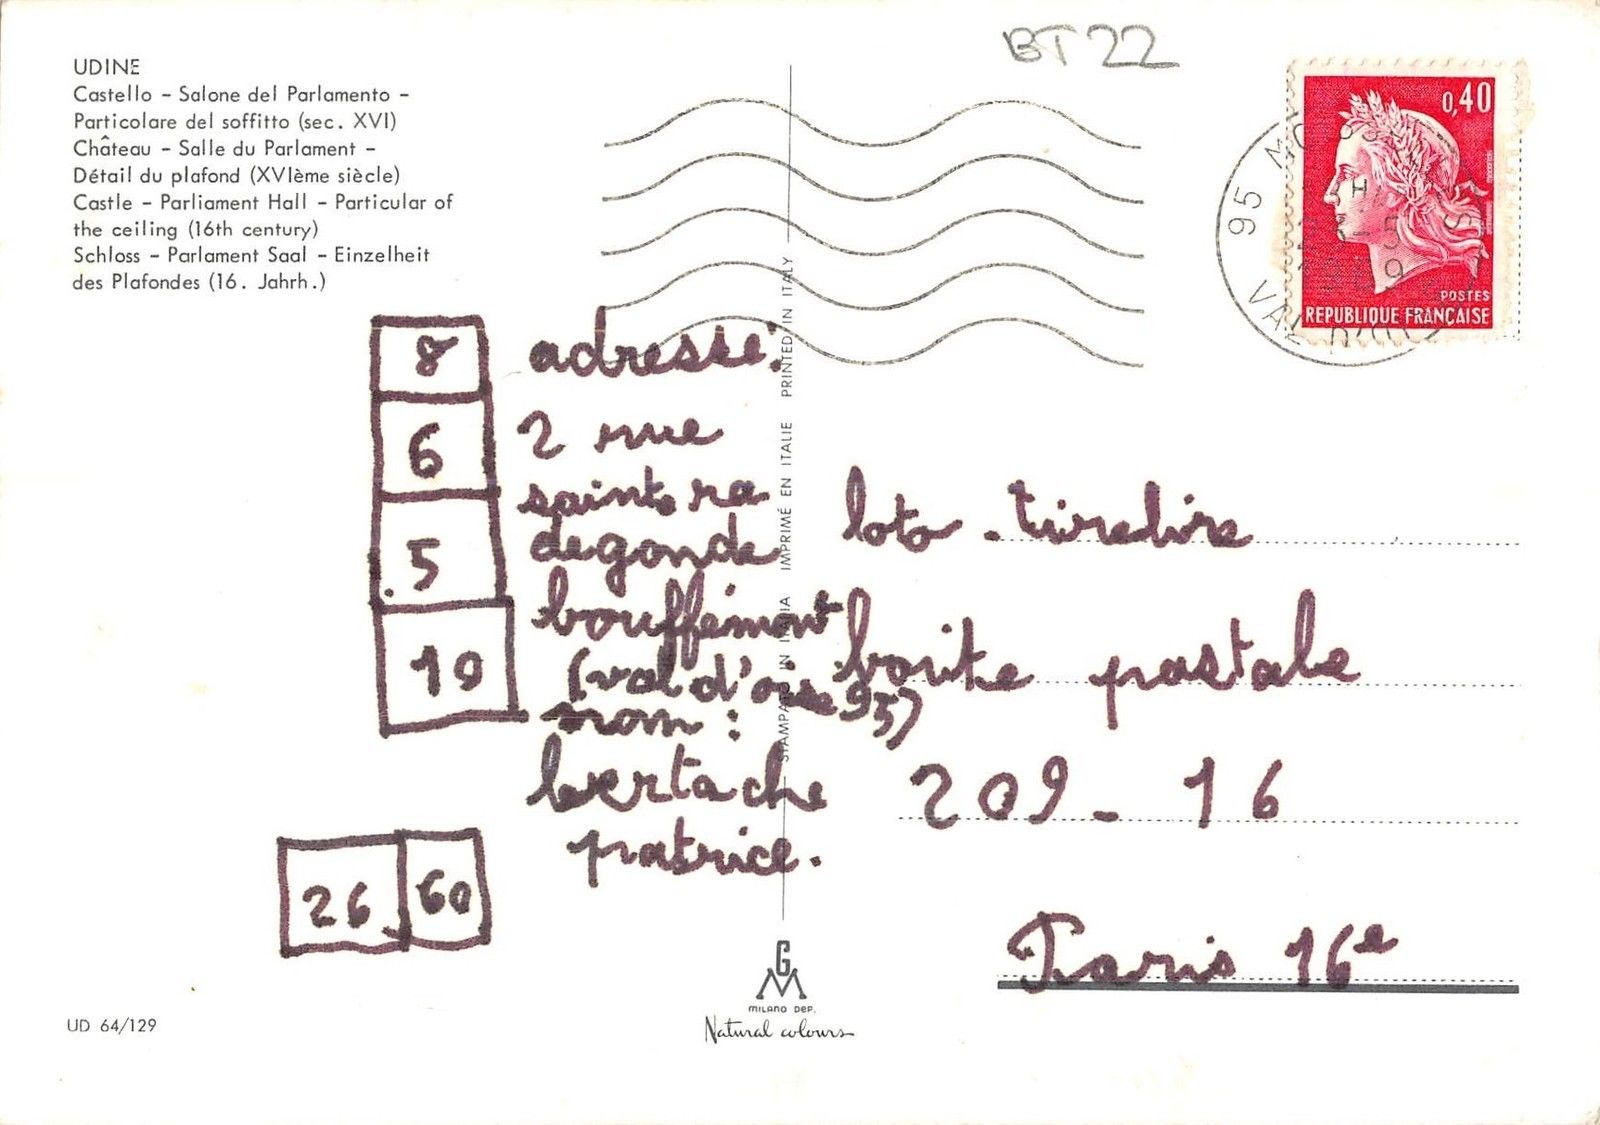 BT 22
UDINE
Castello - Salone del Parlamento -
Particolare del soffitto (sec. XVI)
Château - Salle du Parlament -
Détail du plafond (XVIème siècle)
Castle - Parliament Hall - Particular of
the ceiling (16th century)
Schloss - Parlament Saal - Einzelheit
des Plafondes (16. Jahrh.)
0,40
POSTES
REPUBLIQUE FRANÇAISE
95
VAL D'OISE
8
6
5
10
26 60
adresse:
2 rue
sainte ra
degonde
bouffémont
(val d'oise 95)
nom:
bertache
patrice.
STAMPATO IN ITALIA IMPRIMÉ EN ITALIE PRINTED IN ITALY
loto - tirelire
boite postale
209 - 16
Paris 16e
GM
MILANO DEP.
Natural colours
UD 64/129